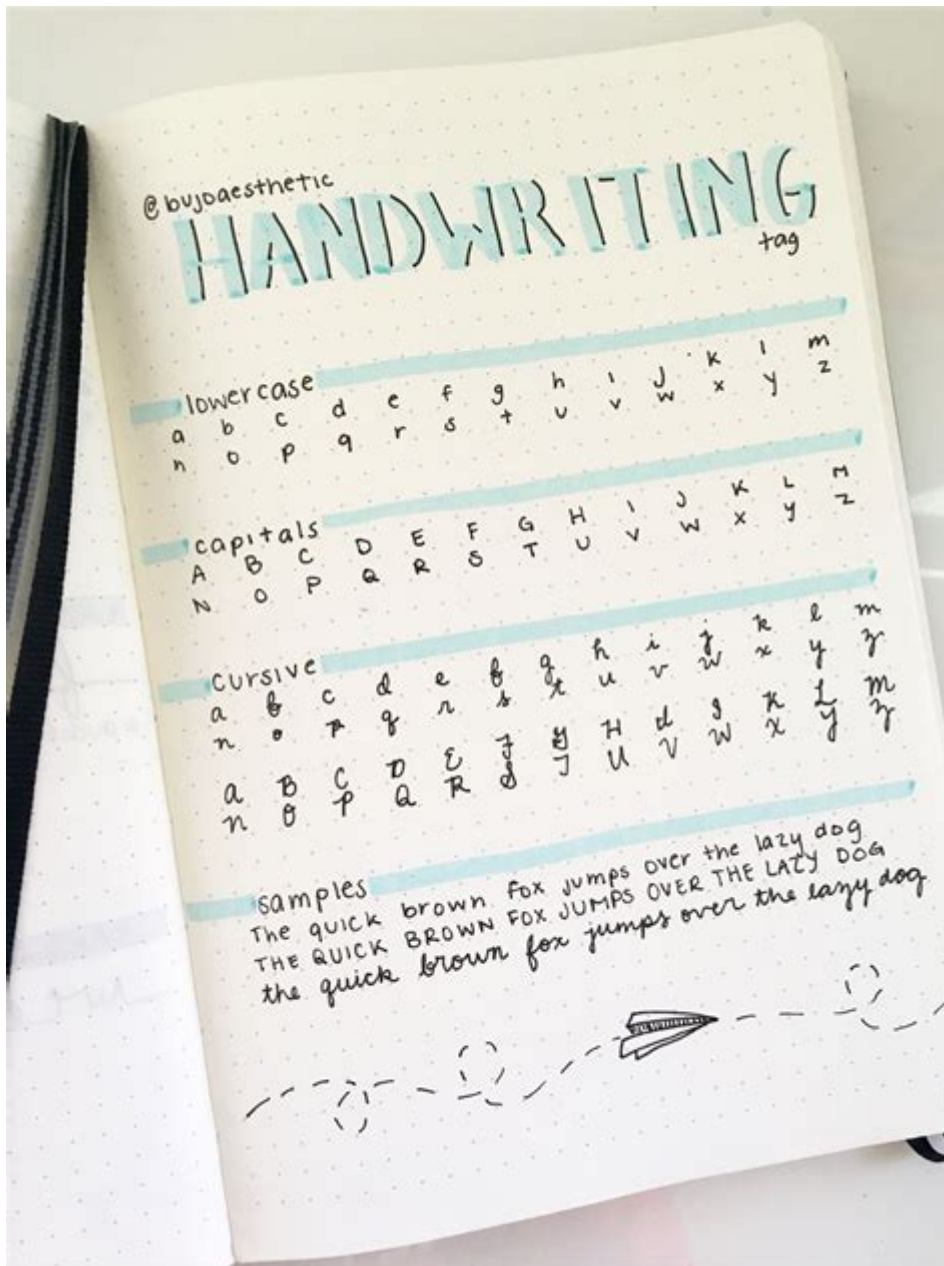 @bujoaesthetic
HANDWRITING
tag
lowercase
a b c d e f g h i j k l m
n o p q r s t u v w x y z
capitals
A B C D E F G H I J K L M
N O P Q R S T U V W X Y Z
cursive
a b c d e f g h i j k l m
n o p q r s t u v w x y z
a B C D E F G H I J K L m
n O P Q R S T U V W X Y Z
samples
The quick brown fox jumps over the lazy dog
THE QUICK BROWN FOX JUMPS OVER THE LAZY DOG
the quick brown fox jumps over the lazy dog